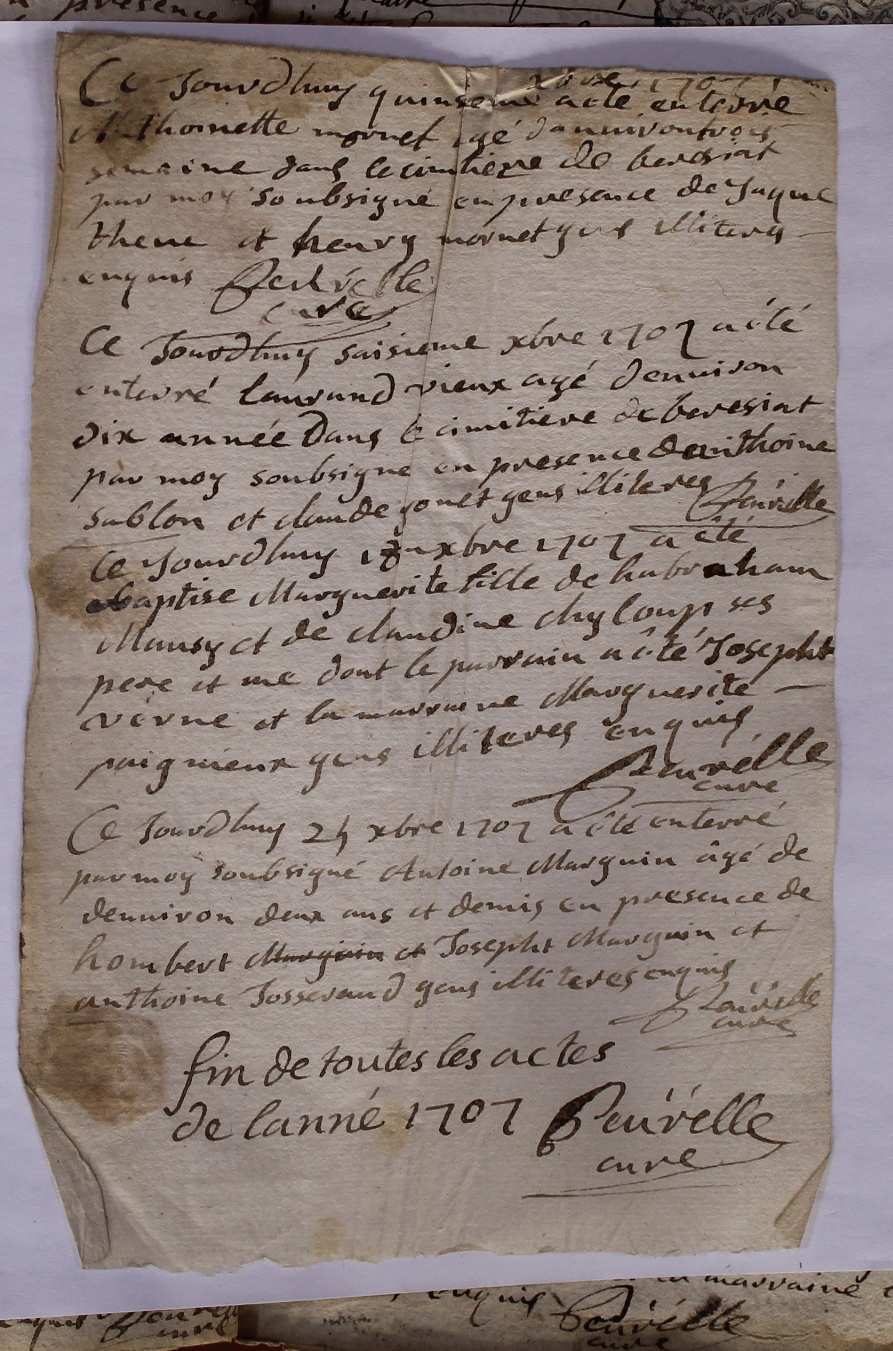 xbre 1707
Ce Jourdhuy quinseme a eté enterré
Anthoinette mornet agé danuiron trois
semaine dans le cimitiere de beresiat
par moy soubsigné en presence de Jaque
thene et henry mornet gens illiteres
enquis Peuvrelle
curé
Ce Jourdhuy saisieme xbre 1707 a été
enterré laurand vieux agé denuiron
dix année dans le cimitiere de beresiat
par moy soubsigne en presence de anthoine
sablon et claude gonet gens illiteres Peuvrelle
Ce Jourdhuy xbre 1707 a été
baptise Marguerite fille de habraham
Mansy et de claudine chyloup ses
pere et me dont le parrain a été Josepht
verne et la marraine Marguerite
paignieux gens illiteres enquis
Peuvrelle
curé
Ce Jourdhuy 24 xbre 1707 a été enterré
par moy soubsigné Antoine Marguin âgé de
denuiron deux ans et demis en presence de
hombert Marguin et Josepht Marguin et
anthoine Josserand gens illiteres enquis
Peuvrelle
curé
fin de toutes les actes
de lanné 1707 Peuvrelle
curé
la marraine
enquis
Peuvrelle
curé